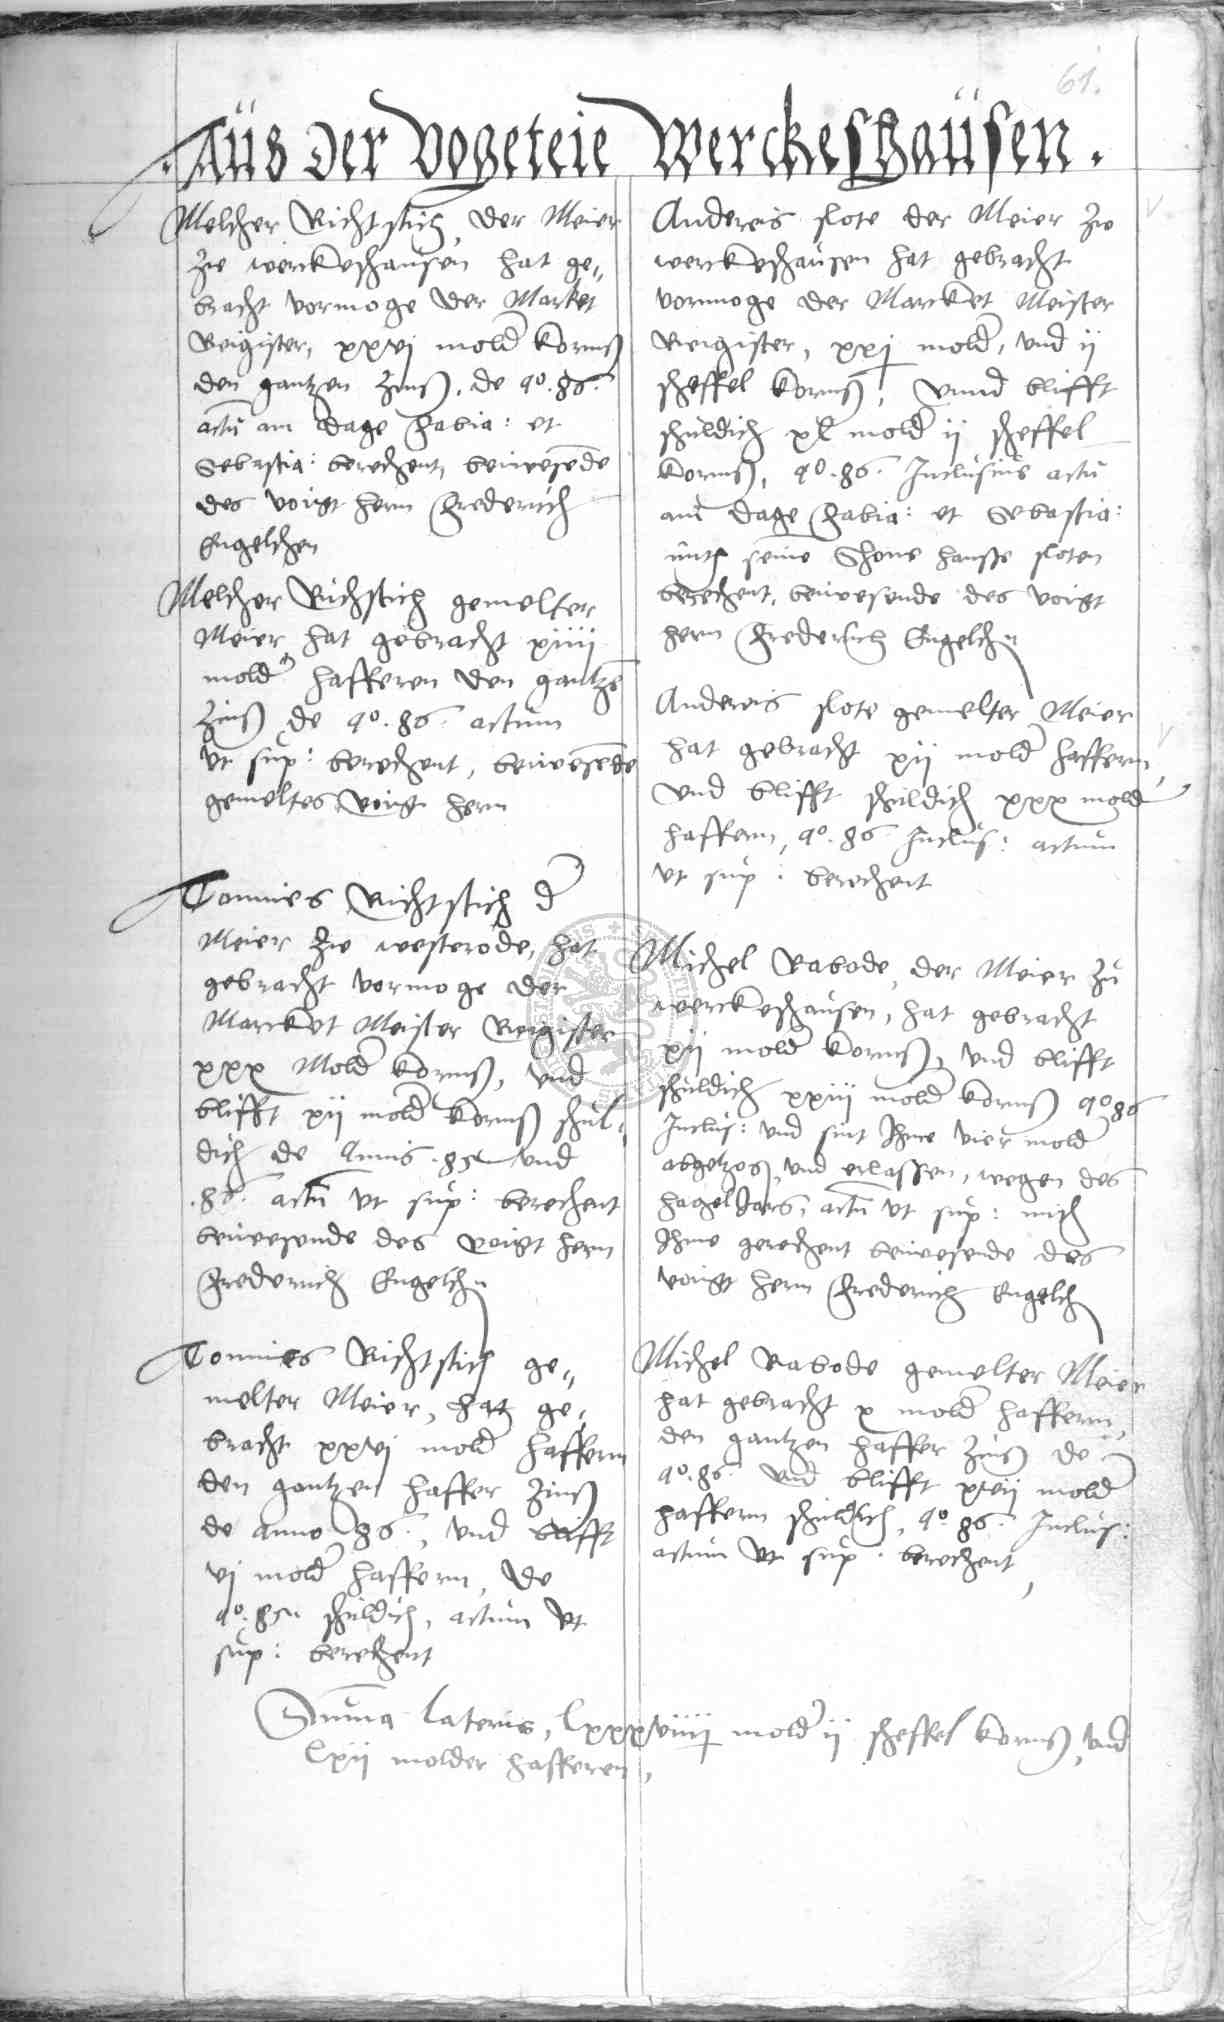 61.
Aüs der Vogeteie Werckeshaüsen.
Melcher Richtstich, der Meier
zue werckeshaüsen hat ge„
bracht vormoge der Market
Reigister, xxvj mold kornß
den gantzen Zinß, de ao. 86.
actũ am dage Fabia: et
Sebastia: berechent, beiwesẽde
des voigt hern Frederich
Engelchen
Melcher Richstich gemelter
Meier, hat gebracht xiiii
mold hafferen den gantzẽ
Zinß de ao. 86. actum
vt sup: berechent, beiwesẽde
gemeltes voigt hern
Tonnies Richtstich d
Meier zue westerode, hat
gebracht vormoge der
Marcket Meister Reigister
xxx Mold kornß, und
blifft xij mold kornß schul„
dich de Annis .85 und
.86. actũ vt sup: berechent
beiwesende des voigt hern
Frederich Engelchn
Tonnies Richtstich ge„
melter Meier, hat ge„
bracht xxvj mold haffern
den gantzen haffer Zinß
de anno 86., und blifft
vj mold haffern, de
ao. 85 schuldich, actum vt
sup: berechent
Andereis flote der Meier zue
werckeshausen hat gebracht
vormoge der Marcket Meister
Reigister, xxj mold, und ij
scheffel kornß, Unnd blifft
schuldich xl mold ij scheffel
kornß, ao. 86. Inclusius actũ
am dage Fabia: et Sebastia:
mith seine Shone hansse floten
berechent, beiwesende des voigt
hern Frederich Engelchn
Andereis flote gemelter Meier
hat gebracht xij mold haffern,
und blifft schuldich xxx mold
haffern, ao. 86. Inclus: actum
vt sup: berechent
Michel Rabode, der Meier zu
werckeshausen, hat gebracht
xij mold kornß, und blifft
schuldich xxiii mold kornß ao 86
Inclus: und sint Ihme vier mold
abgetzog, und erlassen, wegen des
hageljars, actũ vt sup: mith
Ihme gerechent beiwesende des
voigt hern Frederich Engelch
Michel Rabode gemelter Meier
hat gebracht x mold haffern,
den gantzen haffer Zinß de
ao. 86. und blifft xvij mold
haffern schuldich, ao. 86. Inclus:
actum vt sup: berechent,
Sum̃a lateris, lxxxviiij mold ij scheffel kornß, und
lxij molder hafferen,